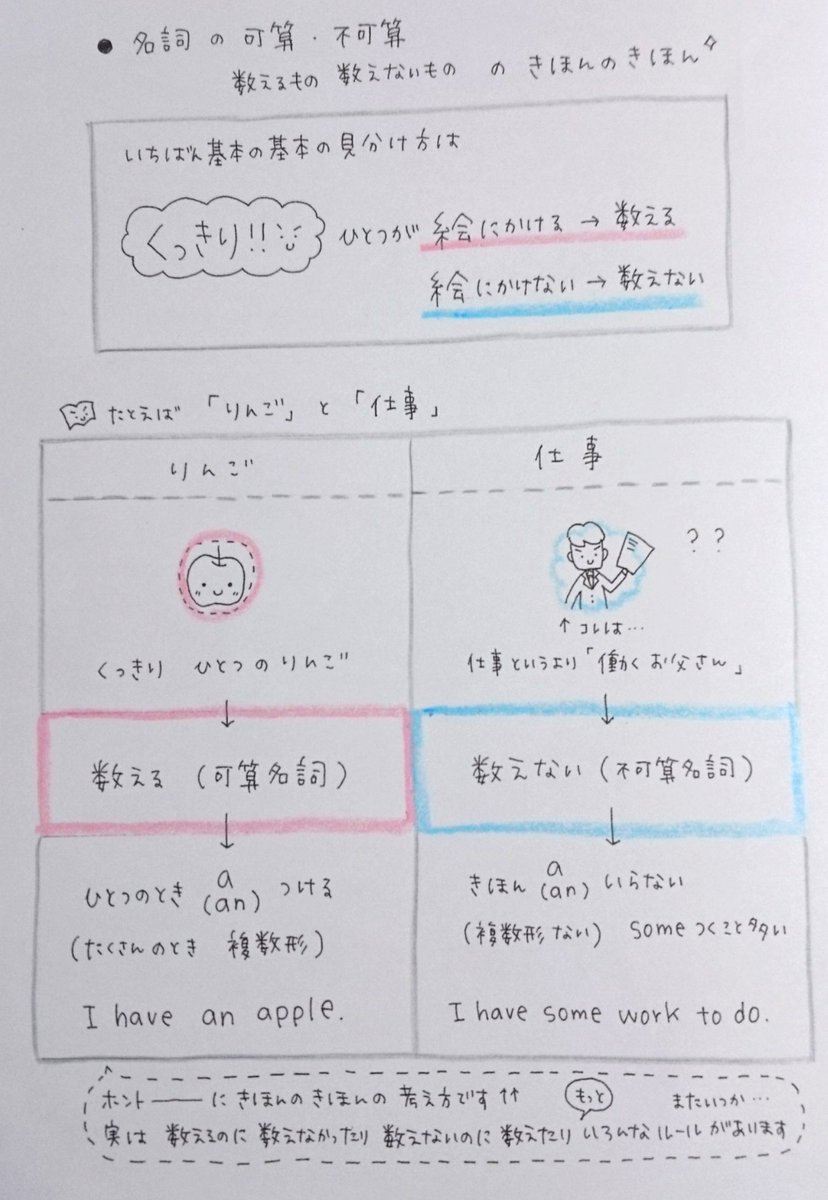 ● 名詞 の 可算・不可算
数えるもの 数えないもの の きほんのきほん
いちばん基本の基本の見分け方は
くっきり!! ひとつが 絵にかける → 数える
絵にかけない → 数えない
たとえば 「りんご」 と 「仕事」
りんご
仕事
? ?
↑ コレは…
くっきり ひとつのりんご
仕事というより「働くお父さん」
↓
↓
数える (可算名詞)
数えない (不可算名詞)
↓
↓
ひとつのとき a (an) つける
(たくさんのとき 複数形)
I have an apple.
きほん a (an) いらない
(複数形 ない) some つくこと多い
I have some work to do.
ホント――に きほんのきほんの 考え方です↑↑ もっと またいつか…
実は 数えるのに 数えなかったり 数えないのに 数えたり いろんなルールがあります